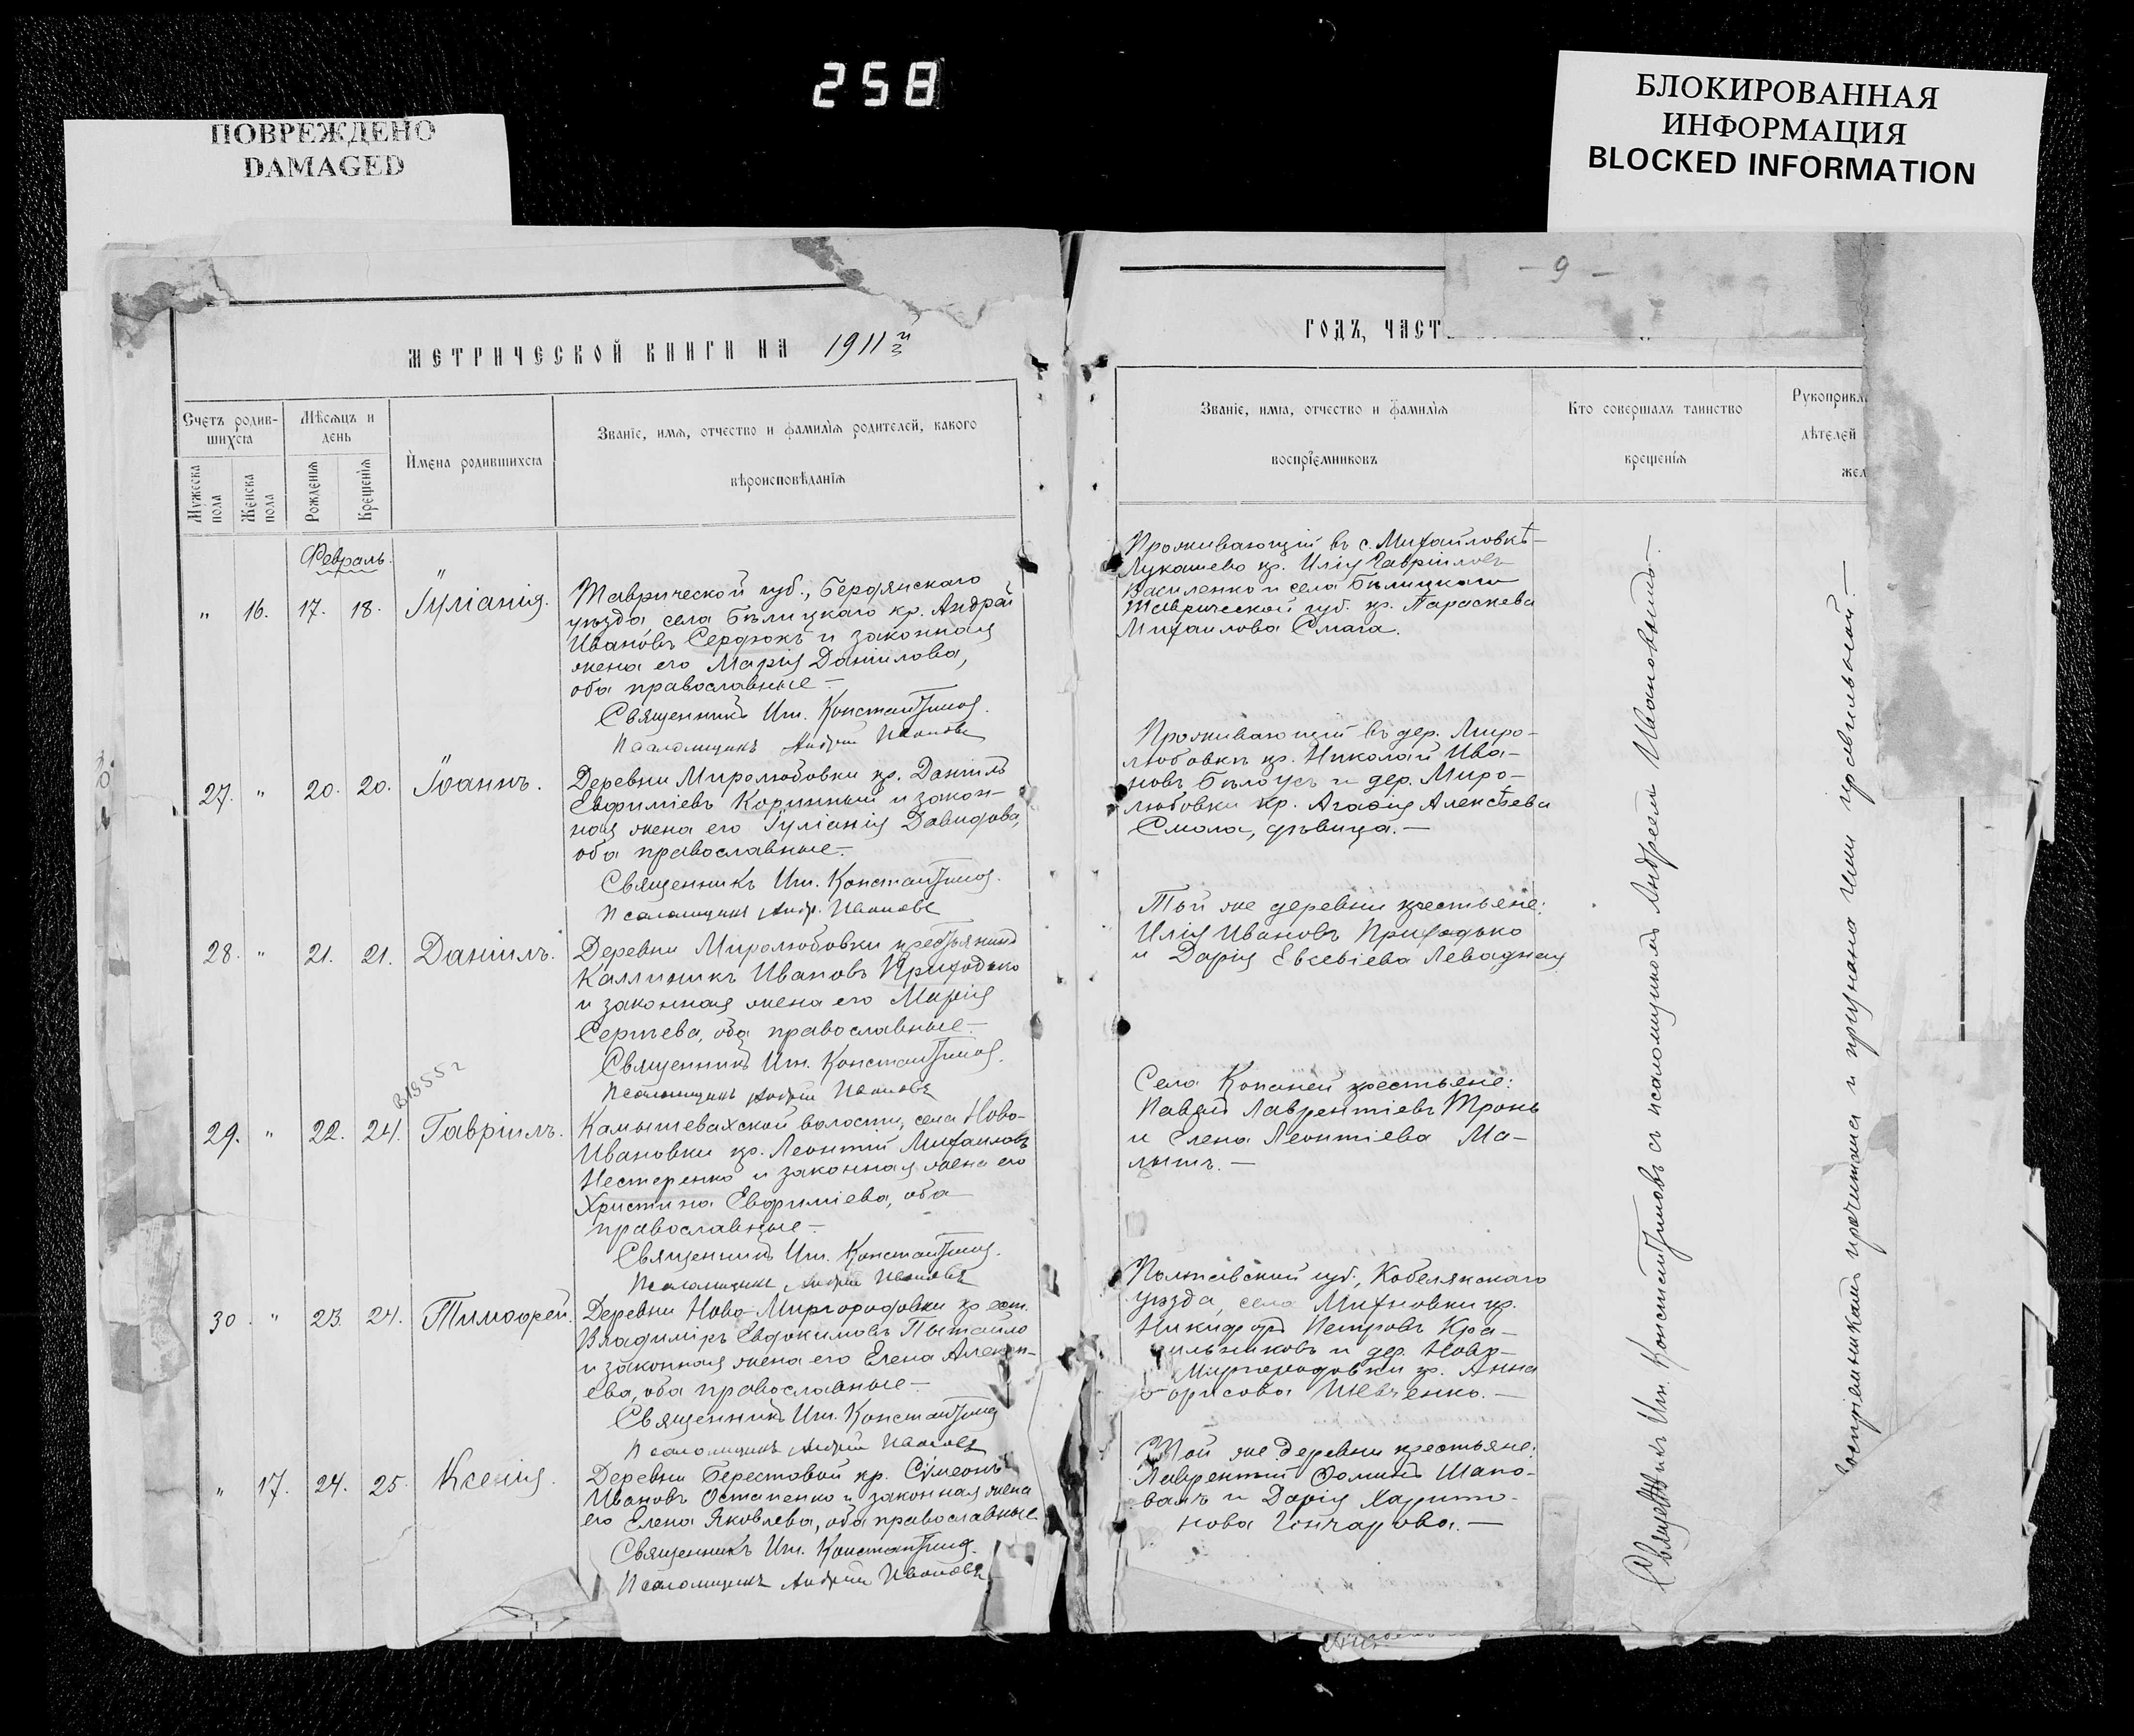 258
ПОВРЕЖДЕНО
DAMAGED
БЛОКИРОВАННАЯ
ИНФОРМАЦИЯ
BLOCKED INFORMATION
МЕТРИЧЕСКОЙ КНИГИ НА 1911й
Счетъ родив-
шихсѧ
Мужеска пола
Женска пола
Мѣсѧцъ и
день
Рожденія
Крещенія
Имена родившихсѧ
Званіе, имѧ, отчество и фамиліѧ родителей, какого
вѣроисповѣданіѧ
Февраль.
" 16. 17. 18. Іуліанія.
Таврической губ., Бердянскаго
уѣзда, села Бѣлицкаго кр. Андрей
Ивановъ Сердюкъ и законная
жена его Марія Даніилова,
оба православные —
Священникъ Иш. Константиновъ.
Псаломщикъ Андрей Ивановъ
27. " 20. 20. Іоаннъ.
Деревни Миролюбовки кр. Даніилъ
Евфиміевъ Коринный и закон-
ная жена его Іуліанія Давидова,
оба православные —
Священникъ Иш. Константиновъ.
Псаломщикъ Андр. Ивановъ
28. " 21. 21. Даніилъ.
Деревни Миролюбовки крестьянинъ
Каллиникъ Ивановъ Приходько
и законная жена его Марія
Сергѣева, оба православные —
Священникъ Иш. Константиновъ.
Псаломщикъ Андрей Ивановъ
В 1955 г
29. " 22. 24. Гавріилъ.
Камышевахской волости, села Ново-
Ивановки кр. Леонтій Михаиловъ
Нестеренко и законная жена его
Христина Евфиміева, оба
православные —
Священникъ Иш. Константиновъ.
Псаломщикъ Андрей Ивановъ
30. " 23. 24. Тимоѳей.
Деревни Ново-Миргородовки крест.
Владиміръ Евдокимовъ Пытайло
и законная жена его Елена Алекс-
ева, оба православные —
Священникъ Иш. Константиновъ
Псаломщикъ Андрей Ивановъ
" 17. 24. 25. Ксенія.
Деревни Берестовой кр. Сѵмеонъ
Ивановъ Остапенко и законная жена
его Елена Яковлева, оба православные
Священникъ Иш. Константиновъ.
Псаломщикъ Андрей Ивановъ
- 9 -
ГОДЪ, ЧАСТ
Званіе, имѧ, отчество и фамиліѧ
воспріемниковъ
Кто совершалъ таинство
крещеніѧ
Рукоприкл
дѣтелей
жел
Проживающій въ с. Михайловкѣ-
Лукашево кр. Илія Гавріиловъ
Василенко и села Бѣлицкаго
Таврической губ. кр. Параскева
Михаилова Смага.
Проживающій въ дер. Миро-
любовкѣ кр. Николай Ива-
новъ Бѣлоусъ и дер. Миро-
любовки кр. Агафія Алексѣева
Смола, дѣвица. —
Той же деревни крестьяне:
Илія Ивановъ Приходько
и Дарія Евсевіева Левадняя
Села Копаней крестьяне:
Павелъ Лаврентіевъ Тронь
и Елена Леонтіева Ма-
лышъ. —
Полтавской губ., Кобелякскаго
уѣзда, села Михновки кр.
Никифоръ Петровъ Кра-
сильниковъ и дер. Ново-
Миргородовки кр. Анна
Борисова Шевченко. —
Той же деревни крестьяне:
Лаврентій Ѳоминъ Шапо-
валъ и Дарія Харито-
нова Гончарова. —
Священникъ Иш. Константиновъ съ псаломщикомъ Андреемъ Ивановымъ. —
воспріемникамъ прочитана и признана ими правильной. —